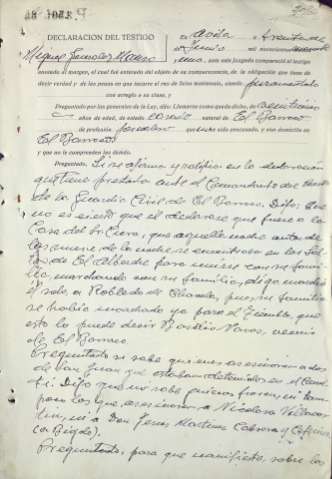 DECLARACION DEL TESTIGO
En Avila a treinta de
Junio de mil novecientos cuarenta
Miguel González Moreno
y uno, ante este Juzgado compareció el testigo
anotado al margen, el cual fue enterado del objeto de su comparecencia, de la obligación que tiene de
decir verdad y de las penas en que incurre el reo de falso testimonio, siendo juramentado
con arreglo a su clase, y
Preguntado por las generales de la Ley, dijo: Llamarse como queda dicho, de
años de edad, de estado casado natural de El Barraco
de profesión jornalero que no sido procesado, y con domicilio en
El Barraco
y que no le comprenden las demás.
Preguntado, Si se afirma y ratifica en la declaración
que tiene prestada ante el Comandante del
de la Guardia Civil de El Barraco. Dijo: Que
no es cierto que el declarase que fuera a la
Casa del Sr Cura, que aquella noche antes de
las nueve de la noche se encontraba en
de El Alberche para unirse con su fami-
lia, marchando con su familia, digo marchó
el solo, a Robledo de Chavela, pues su familia
se había marchado ya para el Tiemblo, que
esto lo puede decir Basilio Varas, vecino
de El Barraco
Preguntado si sabe quienes asesinaron a dos
de San Juan que estaban detenidos en el
Dijo que no sabe quienes fueron, ni tam-
poco los que asesinaron a Nicolasa
ni a Don Jesus Martinez Cabrera y
Preguntado, para que manifieste, sobre los